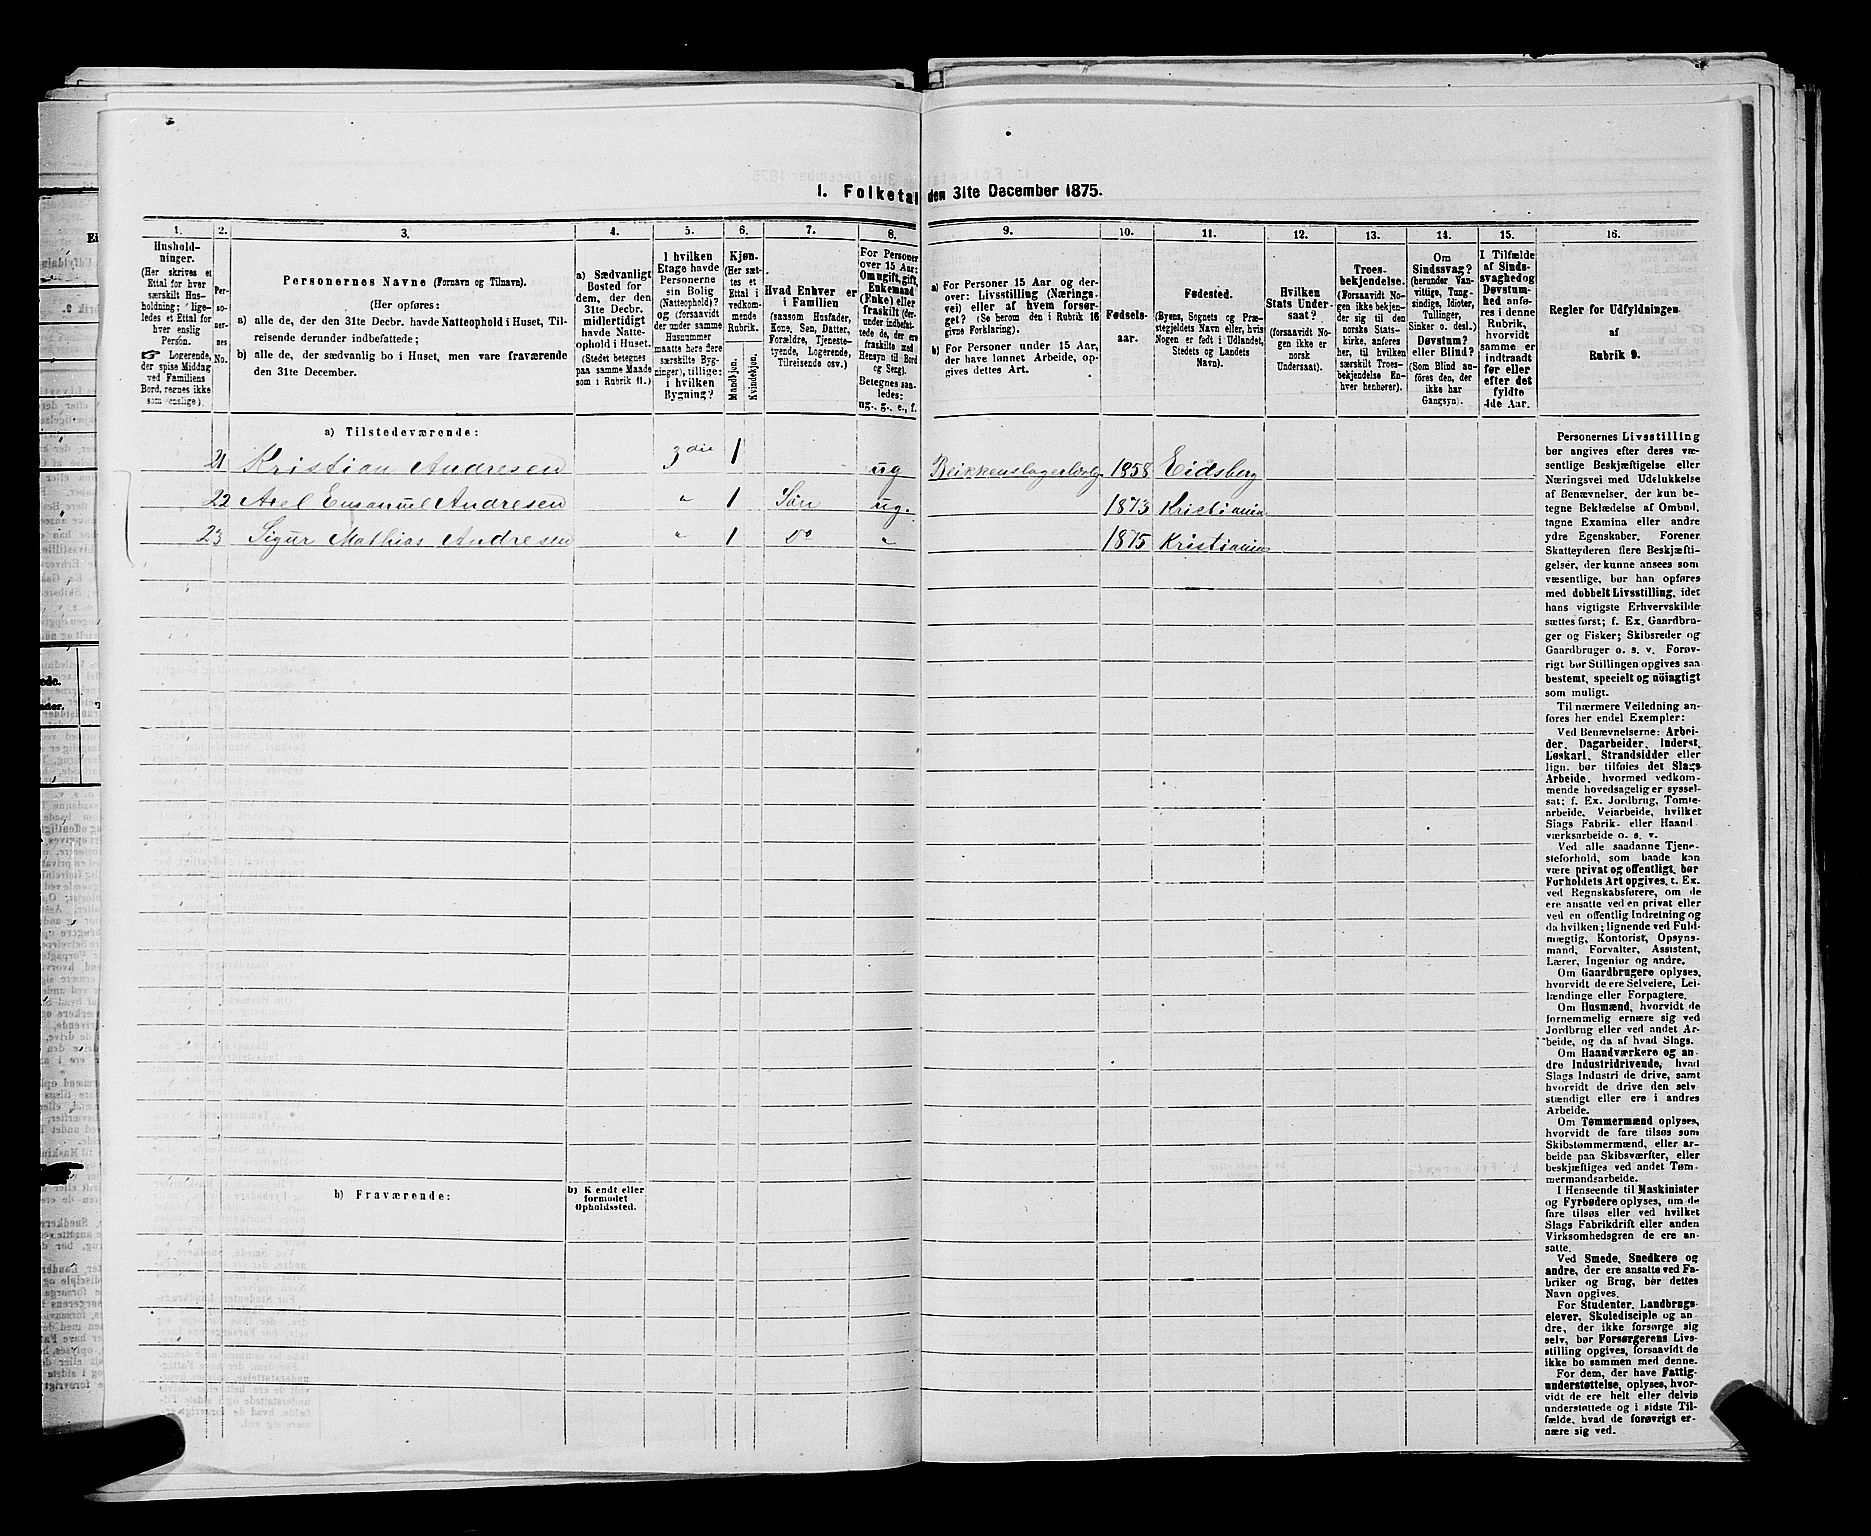 1. Folketal den 31te December 1875.
1.
2.
3.
4.
5.
6.
7.
8.
9.
10.
11.
12.
13.
14.
15.
16.
Hushold-
ninger.
(Her skrives et
Ettal for hver
særskilt Hus-
holdning; lige-
ledes et Ettal for
hver enslig
Person.
☞ Logerende,
der spise Middag
ved Familiens
Bord, regnes ikke
som enslige).
Per-
so-
ner-
nes
No.
Personernes Navne (Fornavn og Tilnavn).
(Her opføres:
a) alle de, der den 31te Decbr. havde Natteophold i Huset, Til-
reisende derunder indbefattede;
b) alle de, der sædvanlig bo i Huset, men vare fraværende
den 31te December.
a) Sædvanligt
Bosted for
dem, der den
31te Decbr.
midlertidigt
havde Natte-
ophold i Huset.
(Stedet betegnes
paa samme Maade
som i Rubrik 11.)
I hvilken
Etage havde
Personerne
sin Bolig
(Natteophold)?
og (forsaavidt
der under samme
Husnummer
maatte høre flere
særskilte Byg-
ninger), tillige:
i hvilken
Bygning?
Kjøn.
(Her sæt-
tes et
Ettal i
vedkom-
mende
Rubrik.
Mandkjøn.
Kvindekjøn.
Hvad Enhver er
i Familien
(saasom Husfader,
Kone, Søn, Datter,
Forældre, Tjeneste-
tyende, Logerende,
Tilreisende osv.)
For Personer
over 15 Aar:
Om ugift, gift,
Enkemand
(Enke) eller
fraskilt (der-
under indbefat-
tede de, der ere
fraskilte med
Hensyn til Bord
og Seng).
Betegnes saa-
ledes:
ug., g., e., f.
a) For Personer 15 Aar og der-
over: Livsstilling (Nærings-
vei) eller af hvem forsør-
get? (Se herom den i Rubrik 16
givne Forklaring).
b) For Personer under 15 Aar,
der have lønnet Arbeide, op-
gives dettes Art.
Fødsels-
aar.
Fødested.
(Byens, Sognets og Præ-
stegjeldets Navn eller, hvis
Nogen er født i Udlandet,
Stedets og Landets
Navn).
Hvilken
Stats Under-
saat?
(forsaavidt No-
gen ikke er
norsk
Undersaat).
Troes-
bekjendelse.
(Forsaavidt No-
gen ikke bekjen-
der sig til den
norske Stats-
kirke, anføres
her, til hvilken
særskilt Troes-
bekjendelse En-
hver henhører).
Om
Sindssvag?
(herunder Van-
vittige, Tung-
sindige, Idioter,
Tullinger,
Sinker o. desl.)
Døvstum?
eller Blind?
(Som Blind an-
føres den, der
ikke har
Gangsyn).
I Tilfælde
af Sinds-
svaghed og
Døvstum-
hed anfø-
res i denne
Rubrik,
hvorvidt
samme er
indtraadt
før eller
efter det
fyldte
4de Aar.
Regler for Udfyldningen
af
Rubrik 9.
a) Tilstedeværende:
21 Kristian Andresen 3die 1 ug 1858 Eidsberg
22 Axel Emanuel Andresen " 1 Søn ug. 1873 Kristiania
23 Sigur Mathias Andresen " 1 Do " 1875 Kristiania
b) Fraværende:
b) Kjendt eller
formodet
Opholdssted.
Personernes Livsstilling
bør angives efter deres væ-
sentlige Beskjæftigelse eller
Næringsvei med Udelukkelse
af Benævnelser, der kun be-
tegne Beklædelse af Ombud,
tagne Examina eller andre
ydre Egenskaber. Forener
Skatteyderen flere Beskjæfti-
gelser, der kunne ansees som
væsentlige, bør han opføres
med dobbelt Livsstilling, idet
hans vigtigste Erhvervskilde
sættes først; f. Ex. Gaardbru-
ger og Fisker; Skibsreder og
Gaardbruger o. s. v. Forøv-
rigt bør Stillingen opgives saa
bestemt, specielt og nöiagtigt
som muligt.
Til nærmere Veiledning an-
føres her endel Exempler:
Ved Benævnelserne: Arbei-
der, Dagarbeider, Inderst,
Løskarl, Strandsidder eller
lign. bør tilføies det Slags
Arbeide, hvormed vedkom-
mende hovedsagelig er syssel-
sat; f. Ex. Jordbrug, Tomte-
arbeide, Veiarbeide, hvilket
Slags Fabrik- eller Haand-
værksarbeide o. s. v.
Ved alle saadanne Tjene-
steforhold, som baade kan
være privat og offentligt, bør
Forholdets Art opgives, t. Ex.
ved Regnskabsførere, om de
ere ansatte ved en privat eller
ved en offentlig Indretning og
da hvilken; lignende ved Fuld-
mægtig, Kontorist, Opsyns-
mand, Forvalter, Assistent,
Lærer, Ingeniør og andre.
Om Gaardbrugere oplyses,
hvorvidt de ere Selveiere, Lei-
lændinge eller Forpagtere.
Om Husmænd, hvorvidt de
fornemmelig ernære sig ved
Jordbrug eller ved andet Ar-
beide, og da af hvad Slags.
Om Haandværkere og an-
dre Industridrivende, hvad
Slags Industri de drive, samt
hvorvidt de drive den selv-
stændigt eller ere i andres
Arbeide.
Om Tømmermænd oplyses,
hvorvidt de fare tilsøs som
Skibstømmermænd, eller ar-
beide paa Skibsværfter, eller
beskjæftiges ved andet Tøm-
mermandsarbeide.
I Henseende til Maskinister
og Fyrbødere oplyses, om de
fare tilsøs eller ved hvilket
Slags Fabrikdrift eller anden
Virksomhedsgren de ere an-
satte.
Ved Smede, Snedkere og
andre, der ere ansatte ved Fa-
briker og Brug, bør dettes
Navn opgives.
For Studenter, Landbrugs-
elever, Skoledisciple og an-
dre, der ikke forsørge sig
selv, bør Forsørgerens Livs-
stilling opgives, forsaavidt de
ikke bo sammen med denne.
For dem, der have Fattig-
understøttelse, oplyses, hvor-
vidt de ere helt eller delvis
understøttede og i sidste Til-
fælde, hvad de forøvrigt er-
nære sig ved.